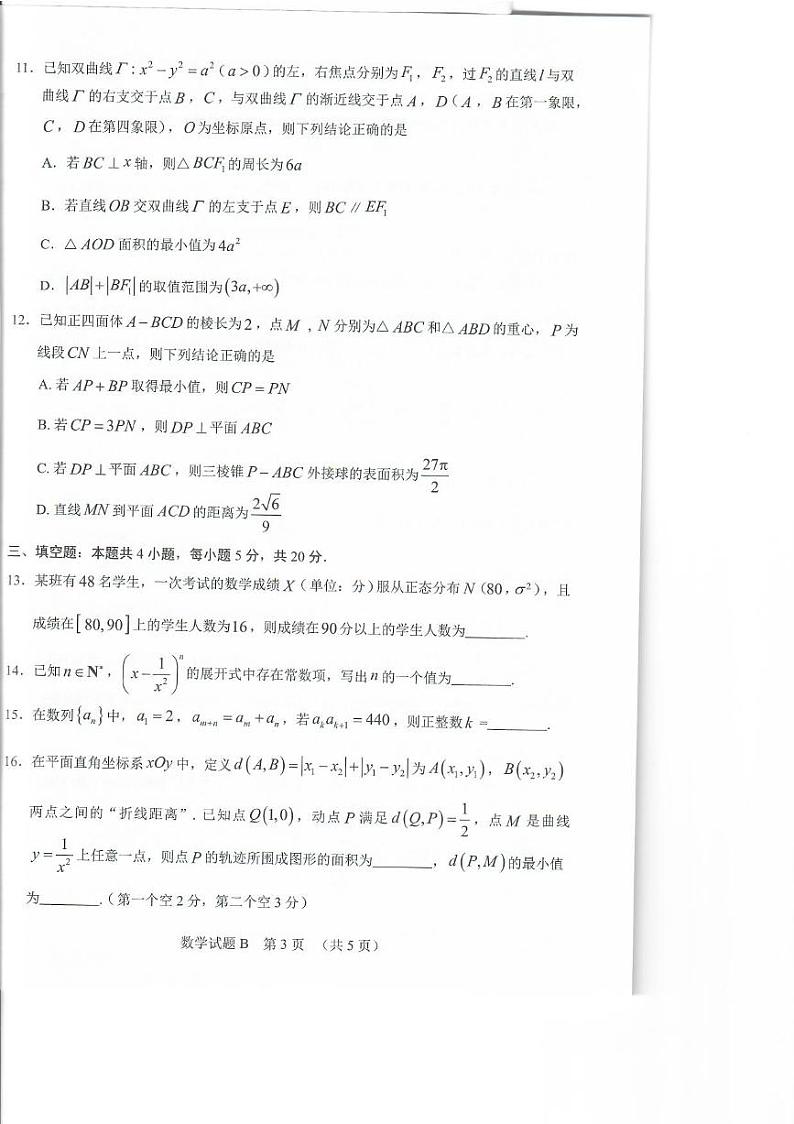 11．已知双曲线 Γ : x² − y² = a²（a > 0）的左，右焦点分别为 F₁，F₂，过 F₂ 的直线 l 与双
曲线 Γ 的右支交于点 B，C，与双曲线 Γ 的渐近线交于点 A，D（A，B 在第一象限，
C，D 在第四象限），O 为坐标原点，则下列结论正确的是
A．若 BC ⊥ x 轴，则△ BCF₁ 的周长为 6a
B．若直线 OB 交双曲线 Γ 的左支于点 E，则 BC // EF₁
C．△ AOD 面积的最小值为 4a²
D．|AB| + |BF₁| 的取值范围为 (3a, +∞)
12．已知正四面体 A − BCD 的棱长为 2，点 M，N 分别为△ ABC 和△ ABD 的重心，P 为
线段 CN 上一点，则下列结论正确的是
A. 若 AP + BP 取得最小值，则 CP = PN
B. 若 CP = 3PN，则 DP ⊥ 平面 ABC
C. 若 DP ⊥ 平面 ABC，则三棱锥 P − ABC 外接球的表面积为 27π/2
D. 直线 MN 到平面 ACD 的距离为 2√6/9
三、填空题：本题共 4 小题，每小题 5 分，共 20 分．
13．某班有 48 名学生，一次考试的数学成绩 X（单位：分）服从正态分布 N（80，σ²），且
成绩在 [80,90] 上的学生人数为 16，则成绩在 90 分以上的学生人数为________．
14．已知 n ∈ N*，(x − 1/x²)ⁿ 的展开式中存在常数项，写出 n 的一个值为________．
15．在数列 {aₙ} 中，a₁ = 2，aₘ₊ₙ = aₘ + aₙ，若 aₖaₖ₊₁ = 440，则正整数 k =________．
16．在平面直角坐标系 xOy 中，定义 d(A,B) = |x₁ − x₂| + |y₁ − y₂| 为 A(x₁,y₁)，B(x₂,y₂)
两点之间的“折线距离”．已知点 Q(1,0)，动点 P 满足 d(Q,P) = 1/2，点 M 是曲线
y = 1/x² 上任意一点，则点 P 的轨迹所围成图形的面积为________，d(P,M) 的最小值
为________．（第一个空 2 分，第二个空 3 分）
数学试题 B 第 3 页 （共 5 页）